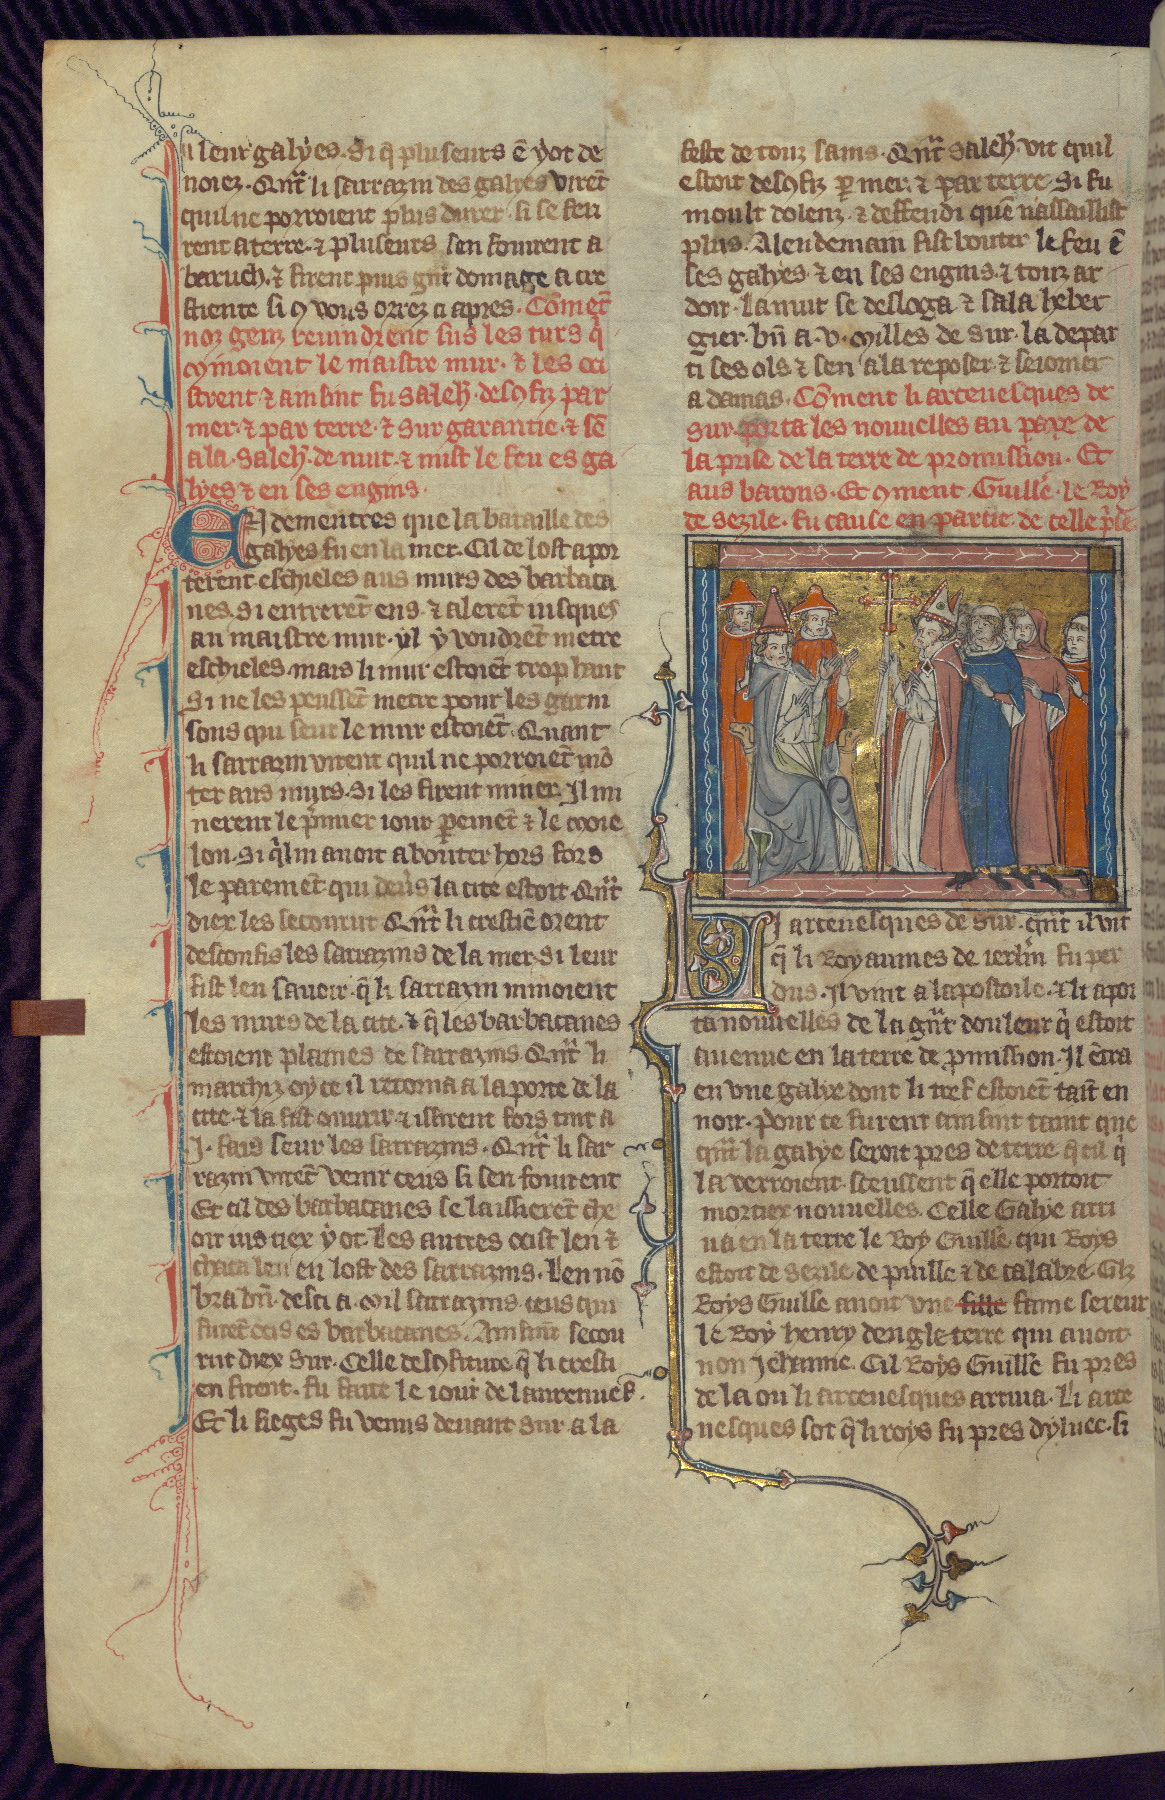 a leur galyes. Si q̃ pluseurs ẽ y ot de
noiez. Qñt li sarrazin des galyes virẽt
quil ne porroient plus durer. si se feri
rent a terre. ⁊ pluseurs sen fouirent a
baruth. ⁊ firent puis gñt domage a cre
stiente si ꝯ vous orrez ci apres. Cõmẽt
noz genz revindrent sus les turs q̃
minoient le maistre mur. ⁊ les oci
strent. ⁊ ainsint fu Saleh. desꝯfiz par
mer. ⁊ par terre. ⁊ Sur garantie. ⁊ sẽ
ala. Saleh. de nuit. ⁊ mist le feu es ga
lyes ⁊ en ses engins.
EN dementres que la bataille des
galyes fu en la mer. Cil de lost apor
terent eschieles aus murs des barbaca
nes. si entrerẽt ens. ⁊ alerẽt iusques
au maistre mur. yl y voudrẽt metre
eschieles. mais li mur estoiẽt trop haut
Si ne les peussẽt metre pour les garni
sons qui seur le mur estoiẽt. Quant
li sarrazin virent quil ne porroiẽt mõ
ter aus murs. Si les firent miner. Il mi
nerent le p̃mier iour p̲emẽt ⁊ le moie
lon. Si q̃l ni avoit a bouter hors fors
le paremẽt qui deũs la cite estoit. Qñt
diex les secourut Qñt li crestiẽ orent
desconfis les sarrazins de la mer. Si leur
fist len savoir. q̃ li sarrazin minoient
les murs de la cite. ⁊ q̃ les barbacanes
estoient plaines de sarrazins. Qñt li
marchiz oy ce il retorna a la porte de la
cite. ⁊ la fist ouvrir. ⁊ issirent fors tint a
.I. fais seur les sarrazins. Qñt li sar
razin virẽt venir ceus si sen fouirent
Et cil des barbacanes se laissierẽt che
oir uis tiex y ot. Les autres ocist len ⁊
chaca len en lost des sarrazins. Len nõ
bra bñ. desci a .mil sarrazins. ceus qui
furẽt ocis es barbacanes. Ainsint secou
rut diex Sur. Celle desꝯfiture q̃ li cresti
en firent. fu faite le iour de lan renuef.
Et li sieges fu venus devant Sur a la
feste de touz sains. Qñt Saleh. vit quil
estoit desꝯfiz p̲ mer. ⁊ par terre. Si fu
moult dolenz. ⁊ deffendi quẽ nassaillist
plus. A lendemain fist bouter le feu ẽ
ses galyes. ⁊ en ses engins. ⁊ touz ar
doir. La nuit se desloga ⁊ sala heber
gier. bñ a .v. milles de sur. la depar
ti ses ols ⁊ sen ala reposer. ⁊ seiorner
a damas. Cõment li arcevesques de
Sur. porta les nouvelles au pape de
la prise de la terre de promission. Et
aus barons. Et ꝯment Guille. le Roy
de Sezile. fu cause en partie. de celle p̃de
LI arcevesques de Sur. qñt il vit
q̃ li Royaumes de ierlm̃ fu per
dus. Il vint a lapostoile. ⁊ li apor
ta nouvelles de la gñt douleur q̃ estoit
avenue en la terre de p̃mission. Il ẽtra
en une galye dont li tref estoiẽt taint en
noir. Pour ce furent ainsint taint que
qñt la galye seroit pres de terre q̃ cil q̃
la verroient. sceussent q̃ elle portoit
mortiex nouvelles. Celle Galye arri
va en la terre le Roy Guille. qui Roys
estoit de Sezile de puille ⁊ de calabre. Cilz
Roys Guille avoit une fille fame sereur
le Roy henry dengleterre qui avoit
non Jehanne. Cil Roys Guille fu pres
de la ou li arcevesques arriva. Li arce
vesques sot q̃ li roys fu pres dyluec. si